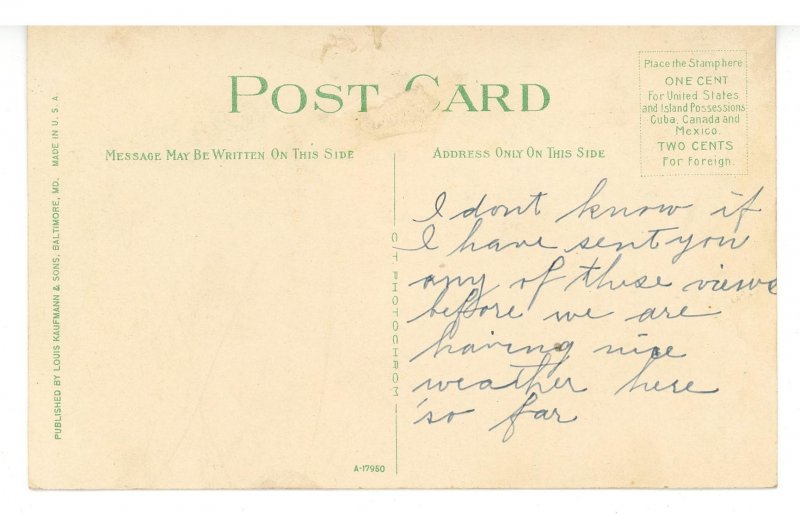 POST CARD
MESSAGE MAY BE WRITTEN ON THIS SIDE
ADDRESS ONLY ON THIS SIDE
Place the Stamp here
ONE CENT
For United States
and Island Possessions
Cuba, Canada and
Mexico.
TWO CENTS
For Foreign.
I dont know if
I have sent you
any of these views
before we are
having nice
weather here
so far
C.T. PHOTOCHROM
A-17950
PUBLISHED BY LOUIS KAUFMANN & SONS, BALTIMORE, MD. MADE IN U.S.A.